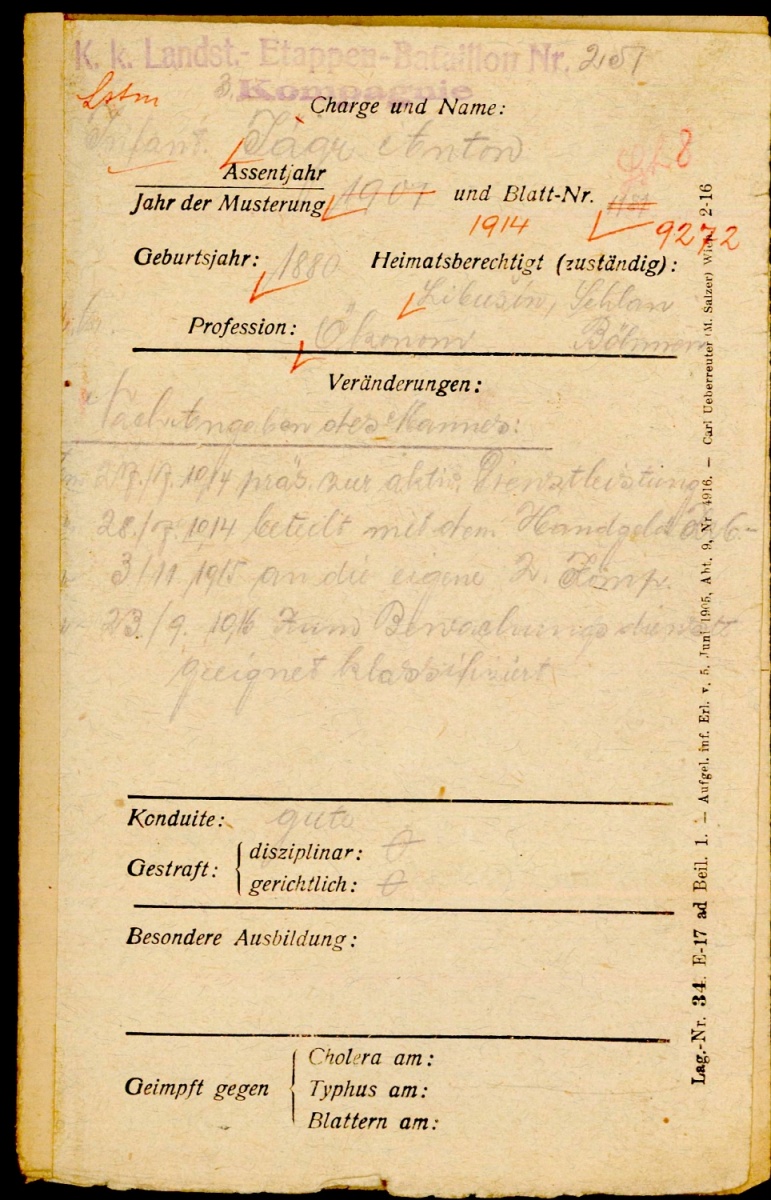 K. k. Landst.- Etappen-Bataillon Nr. 251
3. Kompagnie
Lstm
Charge und Name:
Infant. Jágr Anton
Assentjahr
Jahr der Musterung 1901 und Blatt-Nr.
1914 9272
Geburtsjahr: 1880 Heimatsberechtigt (zuständig):
Libušin, Schlan
Profession: Ökonom Böhmen
Veränderungen:
Nach Angaben des Mannes:
27./7. 1914 präs. zur aktiv. Dienstleistung
28./7. 1914 beteilt mit dem Handgeld
3/11 1915 an die eigene 2. Komp.
23/9. 1916 Zum Bewachungsdienste
geeignet klassifiziert
Konduite: gute
Gestraft: disziplinar: 0
gerichtlich: 0
Besondere Ausbildung:
Geimpft gegen
Cholera am:
Typhus am:
Blattern am:
Lag.-Nr. 34. E-17 ad Beil. 1. — Aufgel. inf. Erl. v. 5. Juni 1905, Abt. 9, Nr 4916. — Carl Ueberreuter (M. Salzer) Wien. 2-16